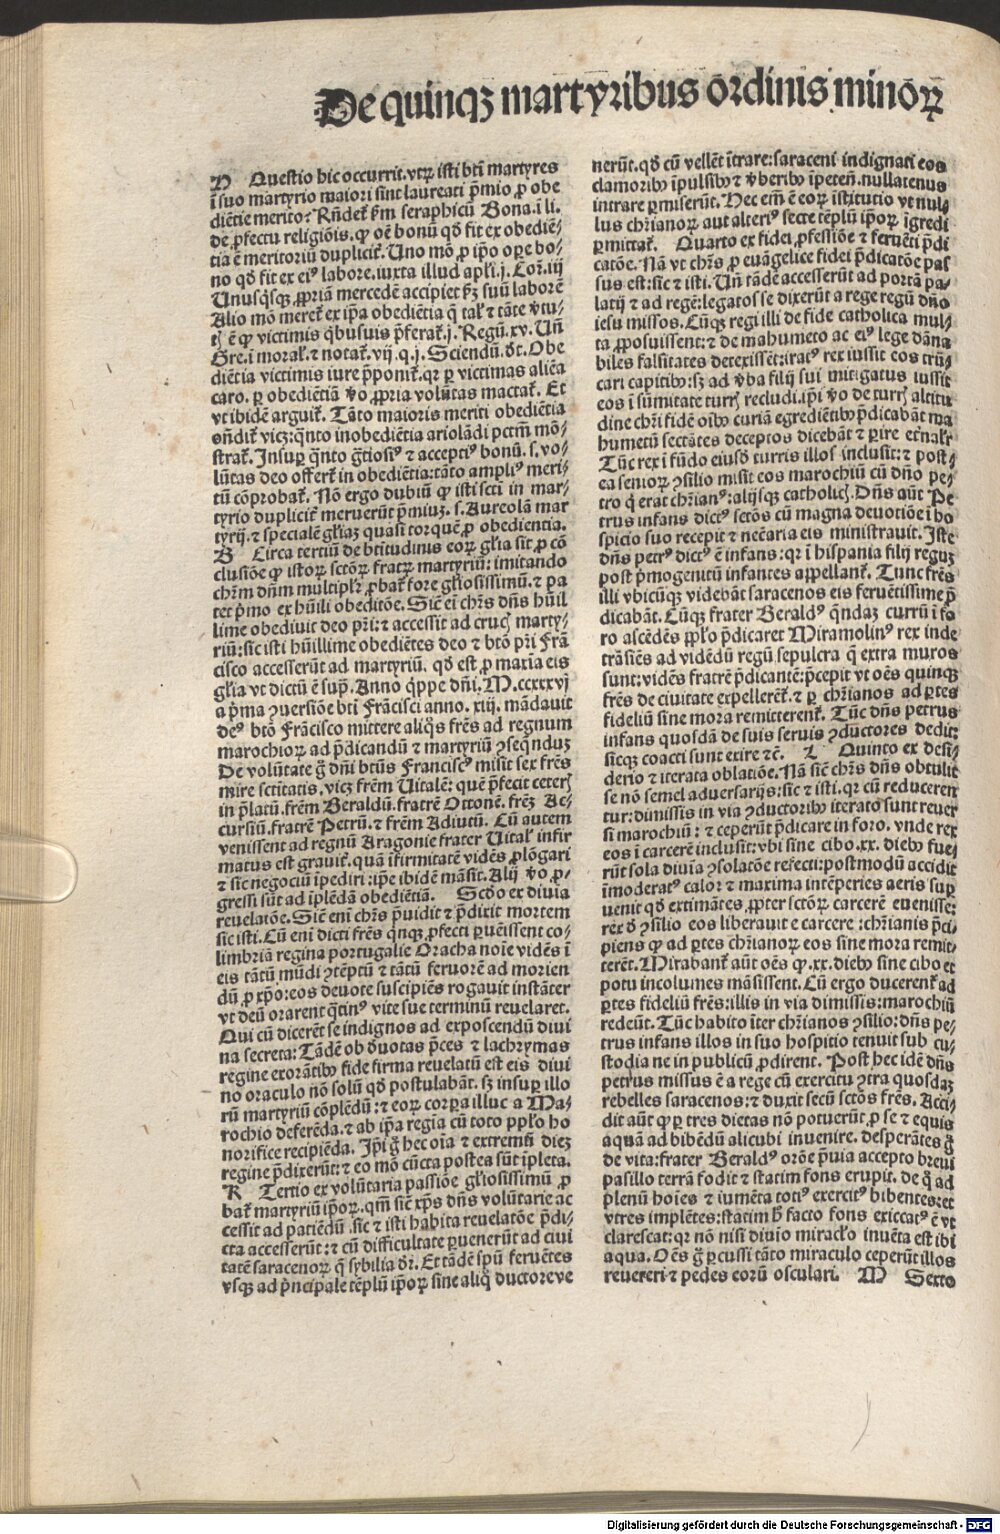 De quinqꝫ martyribus ōrdinis minōꝝ
H Questio hic occurrit. vtꝝ isti bti martyres
ī suo martyrio maiori sint laureati p̄mio ꝓ obe
diētie merito? Rn̄det̄ s̄m seraphicū Bona. ī li.
de ꝓfectu religiōis. ꝙ oē bonū qd̄ fit ex obediē⸗
tia ē meritoriū duplicit̄. Uno mō ꝓ ip̄o oꝑe bo⸗
no qd̄ fit ex eiꝰ labore. iuxta illud apl̄i .j. Cor̄. iij
Unusq̇sqꝫ ꝓpriā mercedē accipiet s̄ꝫ suū laborē
Alio mō meret̄ ex ip̄a obediētia q̄ tal̄ ⁊ tāte v̄tu⸗
tꝭ ē ꝙ victimis qb̄usuis p̄ferat̄. j. Regū. xv. Un̄
Gre. ī moral̄. ⁊ notat̄. vij. q. j. Sciendū. d̄t. Obe
diētia victimis iure p̄ponit̄. qꝛ ꝑ victimas aliēa
caro. ꝑ obediētiā v̄o ꝓpria volūtas mactat̄. Et
vt ibidē arguit̄. Tāto maioris meriti obediētia
on̄dit̄ vicꝫ: q̄nto inobediētia ariolādi pctm̄ mō⸗
strat̄. Insuꝑ q̄nto gr̄tiosiꝰ ⁊ acceptiꝰ bonū. s. vo⸗
lūtas deo offert̄ in obediētia: tāto ampliꝰ meri⸗
tū cōprobat̄. Nō ergo dubiū ꝙ isti scti in mar⸗
tyrio duplicit̄ meruerūt p̄miuꝫ. s. Aureolā mar
tyrij. ⁊ specialē gl̄iaꝫ quasi torquē ꝓ obedientia.
Circa tertiū de btitudinis eoꝝ gl̄ia sit ꝓ cō
clusiōe ꝙ istoꝝ sctōꝝ fratꝝ martyriū: imitando
chr̄m dn̄m multiplr̄ ꝓbat̄ fore gl̄iosissimū. ⁊ pa
tet p̄mo ex hūili obeditōe. Sic̄ ei chr̄s dn̄s hūil
lime obediuit deo pr̄i: ⁊ accessit ad crucꝭ marty⸗
riū: sic isti hūillime obediētes deo ⁊ btō pr̄i Frā
cisco accesserūt ad martyriū. qd̄ est ꝓ maxīa eis
gl̄ia vt dictū ē sup̄. Anno q̇ppe dn̄i. M.ccxxvj
a p̄ma ↄuersiōe bti Frācisci anno. xiij. mādauit
deꝰ btō Frācisco mittere aliq̄s frēs ad regnum
marochioꝝ ad p̄dicandū ⁊ martyriū ↄseq̄nduꝫ
De volūtate g̊ dn̄i btūs Franciscꝰ misit sex frēs
mire sctitatis. vicꝫ frēm Uitalē: quē p̄fecit ceterꝭ
in p̄latū. frēm Beraldū. fratrē Ottonē. frēꝫ Ac⸗
cursiū. fratrē Petrū. ⁊ frēm Adiutū. Cū autem
venissent ad regnū Aragonie frater Uital̄ infir
matus est grauit̄. quā īfirmitatē vidēs ꝓlōgari
⁊ sic negociū īpediri: ip̄e ibidē māsit. Alij v̄o ꝓ⸗
gressi sūt ad īplēdā obediētiā. Scd̄o ex diuīa
reuelatōe. Sic̄ eni chr̄s p̄uidit ⁊ p̄dixit mortem
sic isti. Cū eni dicti frēs q̇nqꝫ ꝓfecti ꝑuēissent co⸗
limbriā regina portugalie Oracha noīe vidēs ī
eis tātū mūdi ↄtēptū ⁊ tātū feruorē ad morien
dū ꝓ xp̄o: eos deuote suscipiēs rogauit instāter
vt deū orarent q̄tinꝰ vite sue terminū reuelaret.
Qui cū dicerēt se indignos ad exposcendū diui
na secreta: Tādē ob d̄uotas p̄ces ⁊ lachrymas
regine exorātibꝰ fide firma reuelatū est eis diui
no oraculo nō solū qd̄ postulabāt. sꝫ insuꝑ illo
rū martyriū cōplēdū: ⁊ eoꝝ corꝑa illuc a Ma⸗
rochio deferēda. ⁊ ab ip̄a regīa cū toto ppl̄o ho
norifice recipiēda. Ip̄i g̊ hec oīa ⁊ extremū dieꝫ
regine p̄dixerūt: ⁊ eo mō cūcta postea sūt īpleta.
K Tertio ex volūtaria passiōe gl̄iosissimū ꝓ
bat̄ martyriū ip̄oꝝ. qm̄ sic̄ xp̄s dn̄s volūtarie ac
cessit ad patiēdū. sic ⁊ isti habita reuelatōe p̄di⸗
cta accesserūt: ⁊ cū difficultate ꝑuenerūt ad ciui
tatē saracenoꝝ q̄ sybilia d̄r. Et tādē spū feruētes
vsqꝫ ad p̄ncipale tēplū ip̄oꝝ sine aliq̄ ductoreve
nerūt. qd̄ cū vellēt ītrare: saraceni indignati eos
clamoribꝰ īpulsibꝰ ⁊ v̄beribꝰ īpeten̄. nullatenus
intrare ꝑmiserūt. Hec em̄ ē eoꝝ īstitutio vt nul⸗
lus chr̄ianoꝝ aut alteriꝰ secte tēplū ip̄oꝝ īgredi
ꝑmittat̄. Quarto ex fidei ꝓfessiōe ⁊ feruēti p̄di
catōe. Nā vt chr̄s ꝓ euāgelice fidei p̄dicatōe pas
sus est: sic̄ ⁊ isti. Un̄ tādē accesserūt ad portā pa⸗
latij ⁊ ad regē: legatos se dixerūt a rege regū dn̄o
iesu missos. Cūqꝫ regi illi de fide catholica mul⸗
ta ꝓposuissent: ⁊ de mahumeto ac eiꝰ lege dāna
biles falsitates detexissēt: iratꝰ rex iussit eos trū⸗
cari capitibꝰ: sꝫ ad v̄ba filij sui mitigatus iussit
eos ī sūmitate turrꝭ recludi. ip̄i v̄o de turrꝭ altitu
dine chr̄i fidē oībꝰ curiā egrediētibꝰ p̄dicabāt ma
humetū sectātes deceptos dicebāt ⁊ ꝑire et̄nalr̄
Tūc rex ī fūdo eiusd̄ turris illos inclusit: ⁊ post⸗
ea senioꝝ ↄsilio misit eos marochiū cū dn̄o pe⸗
tro q̇ erat chr̄ianꝰ: alijsqꝫ catholicꝭ. Dn̄s aūt Pe
trus infans dictꝰ sctōs cū magna deuotiōe ī ho
spicio suo recepit ⁊ nec̄aria eis ministrauit. Iste
dn̄s petrꝰ dictꝰ ē infans: qꝛ ī hispania filij reguꝫ
post p̄mogenitū infantes appellant̄. Tunc frēs
illi vbicūqꝫ videbāt saracenos eis feruētissime p̄
dicabāt. Cūqꝫ frater Beraldꝰ q̄ndaꝫ currū ī fo
ro ascēdēs ppl̄o p̄dicaret Miramolinꝰ rex inde
trāsiēs ad vidēdū regū sepulcra q̄ extra muros
sunt: vidēs fratrē p̄dicantē: p̄cepit vt oēs quinqꝫ
frēs de ciuitate expellerēt̄. ⁊ ꝑ chr̄ianos ad ꝑtes
fideliū sine mora remitterent̄. Tūc dn̄s petrus
infans quosdā de suis seruis ↄductores dedit:
sicqꝫ coacti sunt exire ⁊c̄. L Quinto ex desi⸗
derio ⁊ iterata oblatiōe. Nā sic̄ chr̄s dn̄s obtulit
se nō semel aduersarijs: sic ⁊ isti. qꝛ cū reduceren
tur: dimissis in via ↄductoribꝰ iterato sunt reuer
si marochiū: ⁊ ceperūt p̄dicare in foro. vnde rex
eos ī carcerē inclusit: vbi sine cibo. xx. diebꝰ fue⸗
rūt sola diuīa ↄsolatōe refecti: postmodū accidit
īmoderatꝰ calor ⁊ maxima intēperies aeris suꝑ
uenit qd̄ extimātes ꝓpter sctōꝝ carcerē euenisse:
rex d̄ ↄsilio eos liberauit e carcere: chr̄ianis p̄ci⸗
piens ꝙ ad ꝑtes chr̄ianoꝝ eos sine mora remit⸗
terēt. Mirabant̄ aūt oēs ꝙ .xx. diebꝰ sine cibo et
potu incolumes māsissent. Cū ergo ducerent̄ ad
ꝑtes fideliū frēs: illis in via dimissis: marochiū
redeūt. Tūc habito īter chr̄ianos ↄsilio: dn̄s pe⸗
trus infans illos in suo hospitio tenuit sub cu⸗
stodia ne in publicū ꝓdirent. Post hec idē dn̄s
petrus missus ē a rege cū exercitu ↄtra quosdaꝫ
rebelles saracenos: ⁊ duxit secū sctōs frēs. Acci⸗
dit aūt ꝙ ꝑ tres dietas nō potuerūt ꝓ se ⁊ equis
aquā ad bibēdū alicubi inuenire. desperātes g̊
de vita: frater Beraldꝰ orōe p̄uia accepto breui
paxillo terrā fodit ⁊ statim fons erupit. de q̊ ad
plenū hoīes ⁊ iumēta totiꝰ exercitꝰ bibentes: et
vtres implētes: statim h̄ facto fons exiccatꝰ ē vt
clarescat: qꝛ nō nisi diuio miracl̄o inuēta est ibi
aqua. Oēs g̊ ꝑcussi tāto miraculo ceperūt illos
reuereri ⁊ pedes eorū osculari. M Sexto
Digitalisierung gefördert durch die Deutsche Forschungsgemeinschaft - DFG